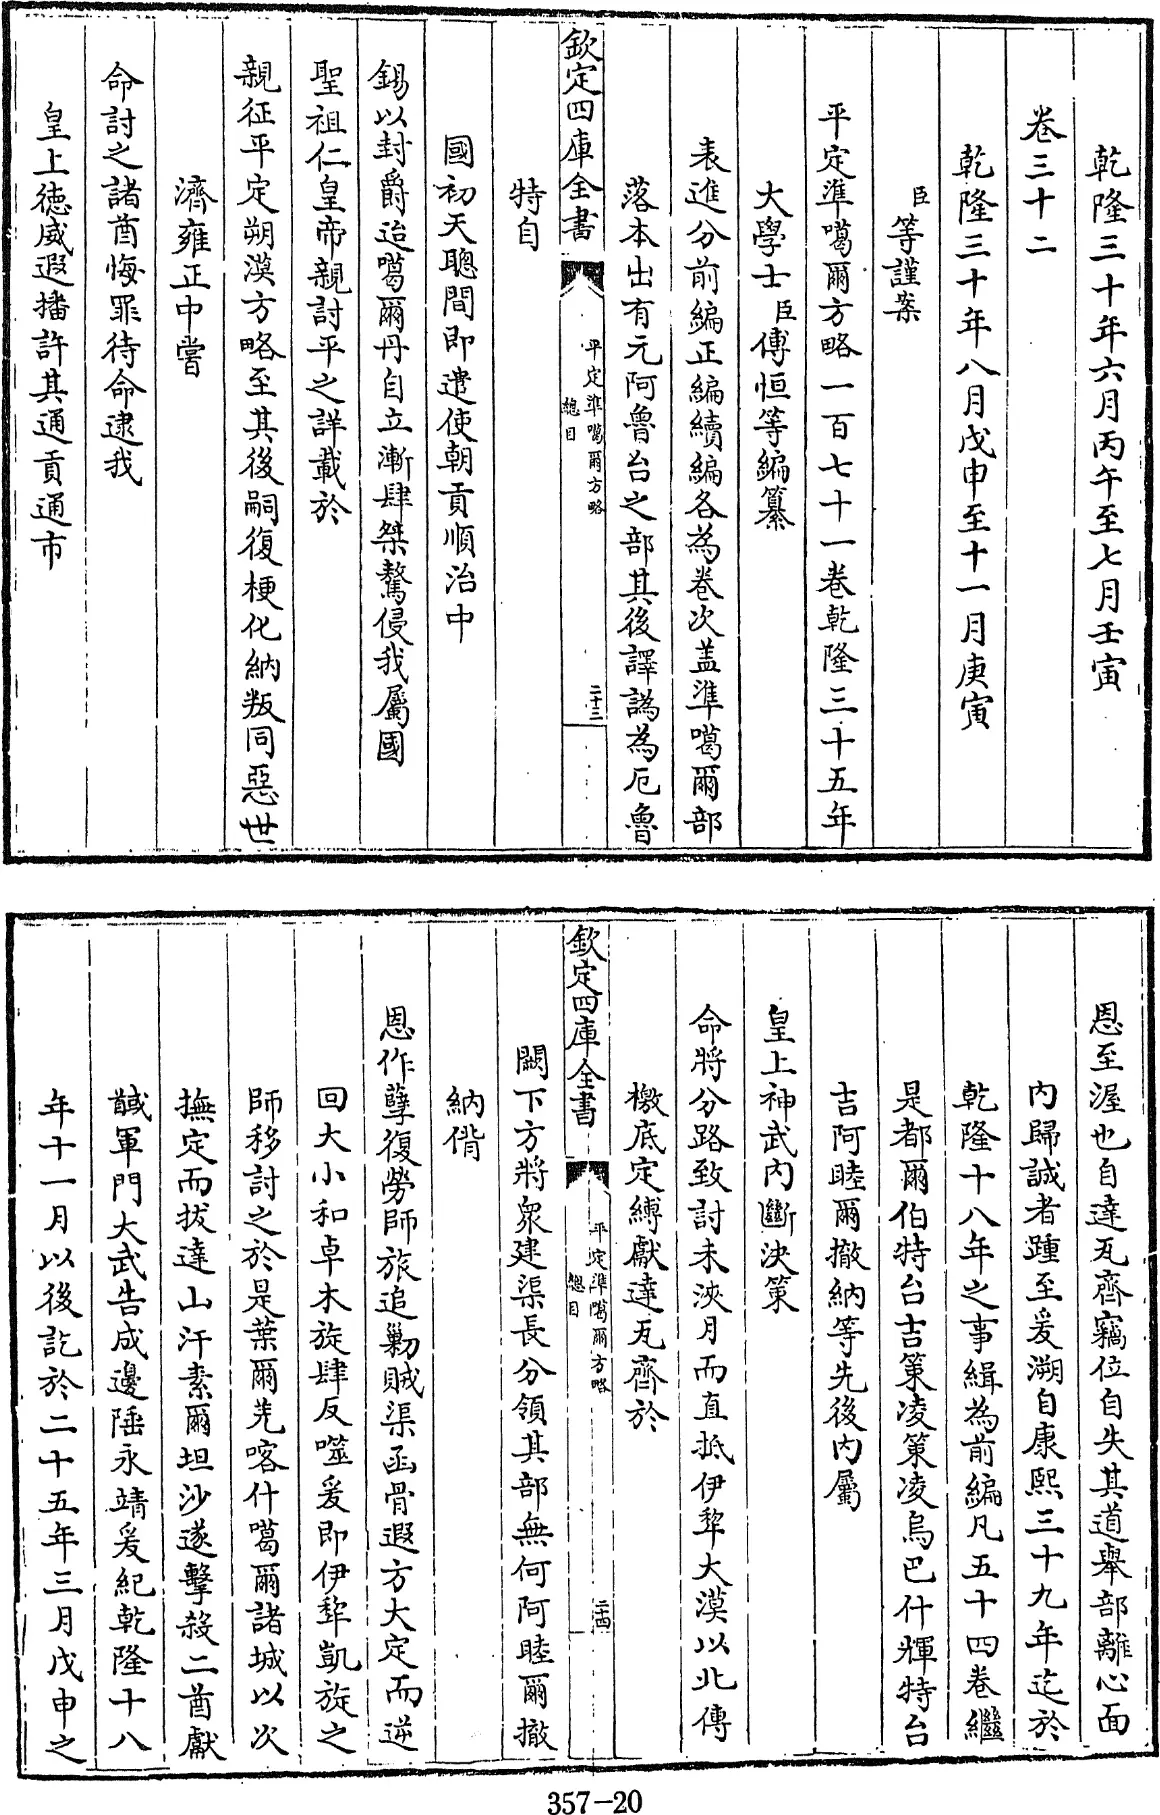 乾隆三十年六月丙午至七月壬寅
卷三十二
乾隆三十年八月戊申至十一月庚寅
臣等謹案
平定準噶爾方略一百七十一卷乾隆三十五年
大學士臣傅恒等編纂
表進分前編正編續編各為卷次盖準噶爾部
落本出有元阿魯台之部其後譯譌為厄魯
特自
欽定四庫全書
平定準噶爾方略
總目
二十三
國初天聰間即遣使朝貢順治中
錫以封爵迨噶爾丹自立漸肆桀驁侵我屬國
聖祖仁皇帝親討平之詳載於
親征平定朔漠方略至其後嗣復梗化納叛同惡世
濟雍正中嘗
命討之諸酋悔罪待命逮我
皇上德威遐播許其通貢通市
恩至渥也自達瓦齊竊位自失其道舉部離心面
內歸誠者踵至爰溯自康熙三十九年迄於
乾隆十八年之事緝為前編凡五十四卷繼
是都爾伯特台吉策凌策凌烏巴什輝特台
吉阿睦爾撤納等先後內屬
皇上神武內斷決策
命將分路致討未浹月而直抵伊犂大漠以北傳
檄底定縛獻達瓦齊於
欽定四庫全書
平定準噶爾方略
總目
二十四
闕下方將衆建渠長分領其部無何阿睦爾撤
納偝
恩作孽復勞師旅追勦賊渠函骨遐方大定而逆
回大小和卓木旋肆反噬爰即伊犂凱旋之
師移討之於是葉爾羌喀什噶爾諸城以次
撫定而拔達山汗素爾坦沙遂擊殺二酋獻
馘軍門大武告成邊陲永靖爰紀乾隆十八
年十一月以後訖於二十五年三月戊申之
357-20